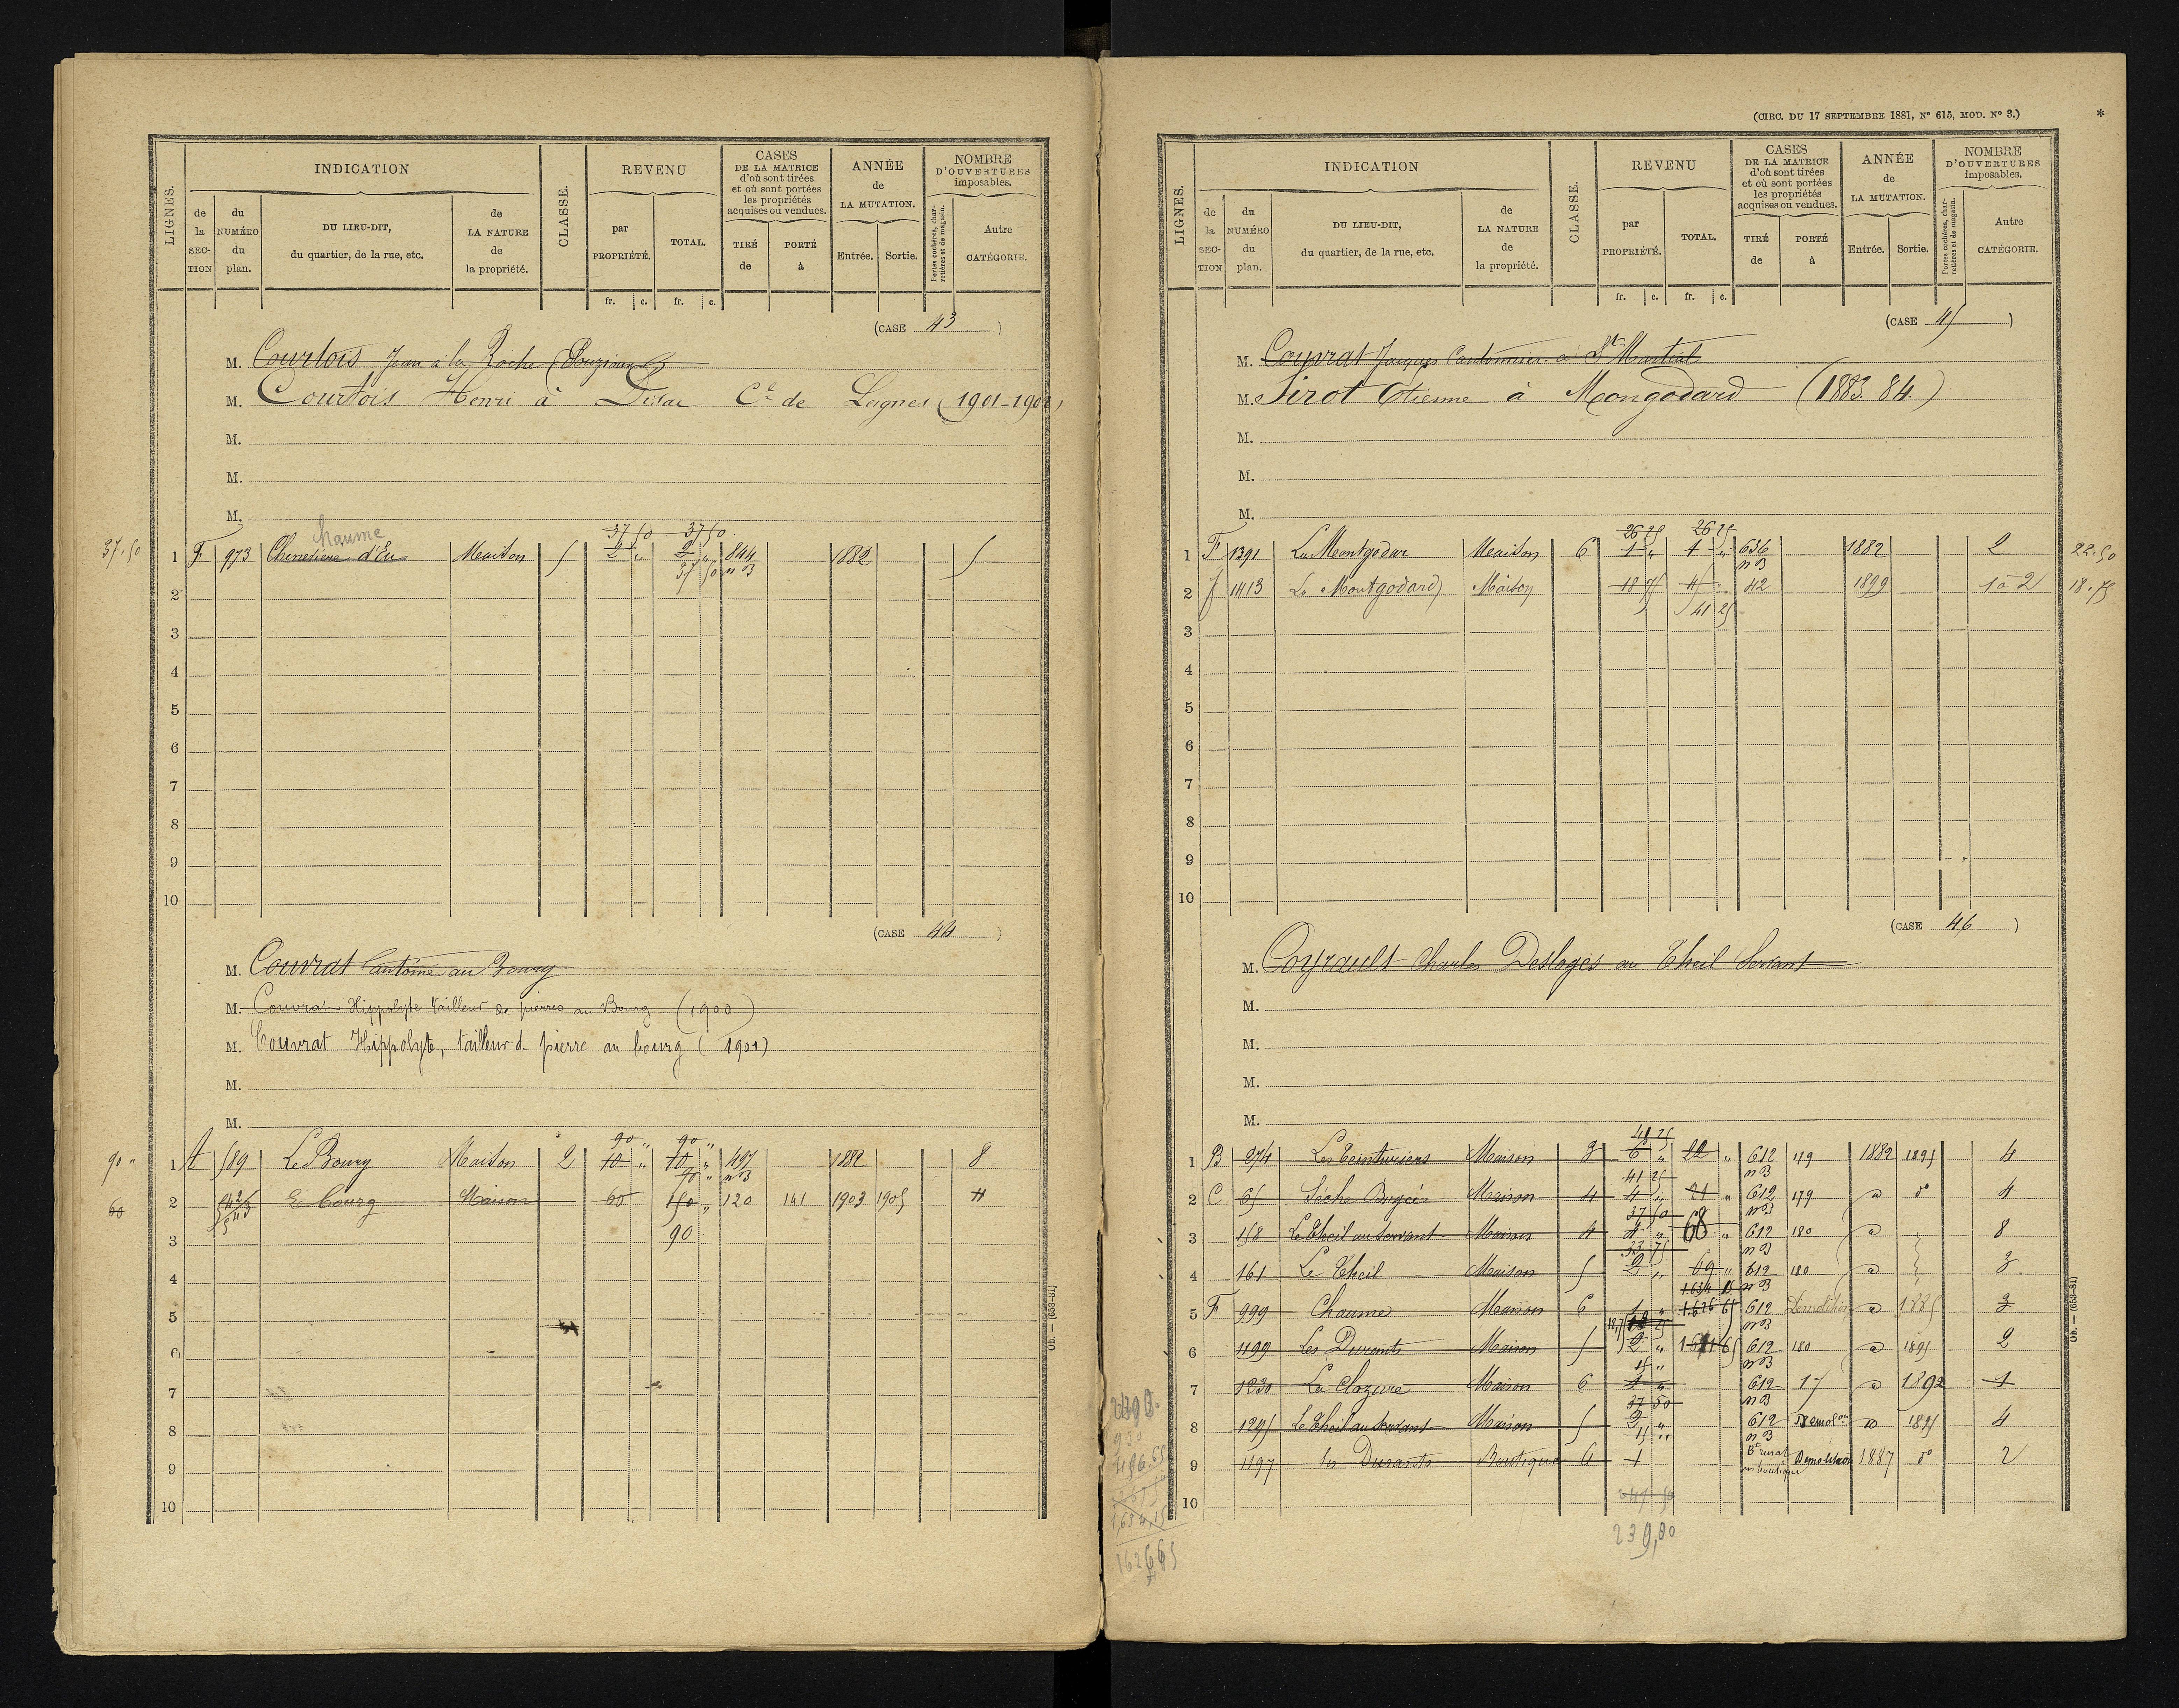 LIGNES.
INDICATION
de la SECTION
du NUMÉRO du plan.
DU LIEU-DIT, du quartier, de la rue, etc.
de LA NATURE de la propriété.
CLASSE.
REVENU
par PROPRIÉTÉ.
TOTAL.
fr. c. fr. c.
CASES DE LA MATRICE d'où sont tirées et où sont portées les propriétés acquises ou vendues.
TIRÉ de
PORTÉ à
ANNÉE de LA MUTATION.
Entrée. Sortie.
NOMBRE D'OUVERTURES imposables.
Portes cochères, charretières et de magasin.
Autre CATÉGORIE.
(CASE 43)
M. Courtois Jean à la Roche
M. Courtois Henri à Disac Cne de Leignes (1901-1902)
M.
M.
M.
chaume
37 50 37 50
37.50 1 F 973 d'Eu Maison 5 2 " 2 " 844 1882 5
37 50 n B
2
3
4
5
6
7
8
9
10
(CASE 44)
M. Couvrat antoine au Bourg
M. Couvrat Hippolyte tailleur de pierres au Bourg (1900)
M. Couvrat Hippolyte, tailleur d. pierre au bourg (1901)
M.
M.
90 " 90 "
90 " 1 A 589 Le Bourg Maison 2 10 " 10 " 497 1882 8
90 " n B
60 2 Le bourg Maison 60 150 " 120 141 1903 1905 4
3 90
4
5
6
7
8
9
10
Ob. — (653-81)
(CIRC. DU 17 SEPTEMBRE 1881, N° 615, MOD. N° 3.)
*
LIGNES.
INDICATION
de la SECTION
du NUMÉRO du plan.
DU LIEU-DIT, du quartier, de la rue, etc.
de LA NATURE de la propriété.
CLASSE.
REVENU
par PROPRIÉTÉ.
TOTAL.
fr. c. fr. c.
CASES DE LA MATRICE d'où sont tirées et où sont portées les propriétés acquises ou vendues.
TIRÉ de
PORTÉ à
ANNÉE de LA MUTATION.
Entrée. Sortie.
NOMBRE D'OUVERTURES imposables.
Portes cochères, charretières et de magasin.
Autre CATÉGORIE.
(CASE 45)
M. Couvrat Jacques Cantonnier à St Martial
M. Sirot Etienne à Mongodard (1883.84.)
M.
M.
M.
26 25 26 25
1 F 1391 Le Montgodar Maison 6 1 " 1 " 636 1882 2 22.50
n B
2 f 1413 Le Montgodard Maison 18 75 45 " 42 1899 1 à 2 18.75
41 25
3
4
5
6
7
8
9
10
(CASE 46)
M. Coyrault Charles Desloges au Theil Servant
M.
M.
M.
M.
48 75
1 B 274 Les Teinturiers Maison 3 6 " 22 " 612 179 1882 1895 4
41 25 n B
2 C 65 Maison 4 4 " 21 " 612 179 d d° 4
37 50 n B
3 158 Le Theil au Servant Maison 4 4 " 68 " 612 180 d 8
33 75 n B
4 161 Le Theil Maison 5 2 " 69 " 612 180 d 3
1.634 15 n B
5 F 999 Chaume Maison 6 1 " 1.626 65 612 Démolition d 1885 3
n B
6 1199 Les Durants Maison 5 2 " 612 180 d 1895 2
15 " n B
7 1230 La Clozure Maison 6 1 " 612 17 d 1892 1
37 50 n B
8 1295 Le Theil au Servant Maison 5 2 " 612 Démolon d 1895 4
15 " n B
9 1197 les Durants Boutique 6 1 Bt rural en boutique Démolition 1887 d° 2
10
239,00
496.65
1,634,15
1626 65
Ob. — (653-81)